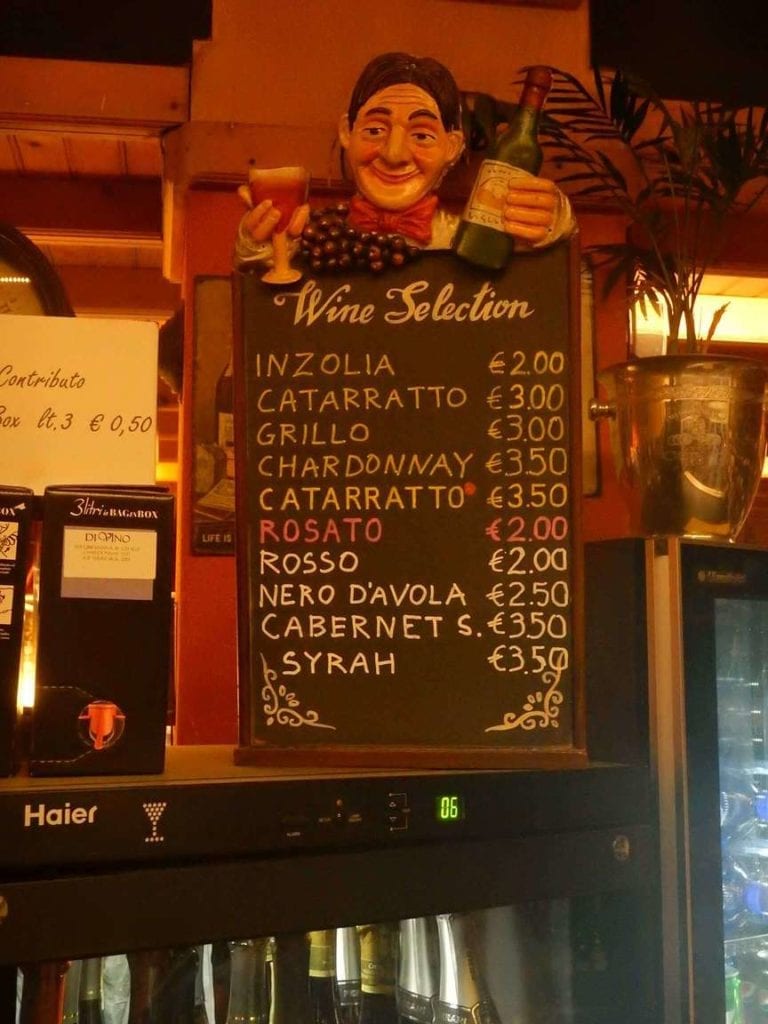 Wine Selection
INZOLIA €2.00
CATARRATTO €3.00
GRILLO €3.00
CHARDONNAY €3.50
CATARRATTO €3.50
ROSATO €2.00
ROSSO €2.00
NERO D'AVOLA €2.50
CABERNET S. €350
SYRAH €3.50
Contributo
Box lt.3 € 0,50
3litri BAG in BOX
DI VINO
LIFE IS
Haier
06